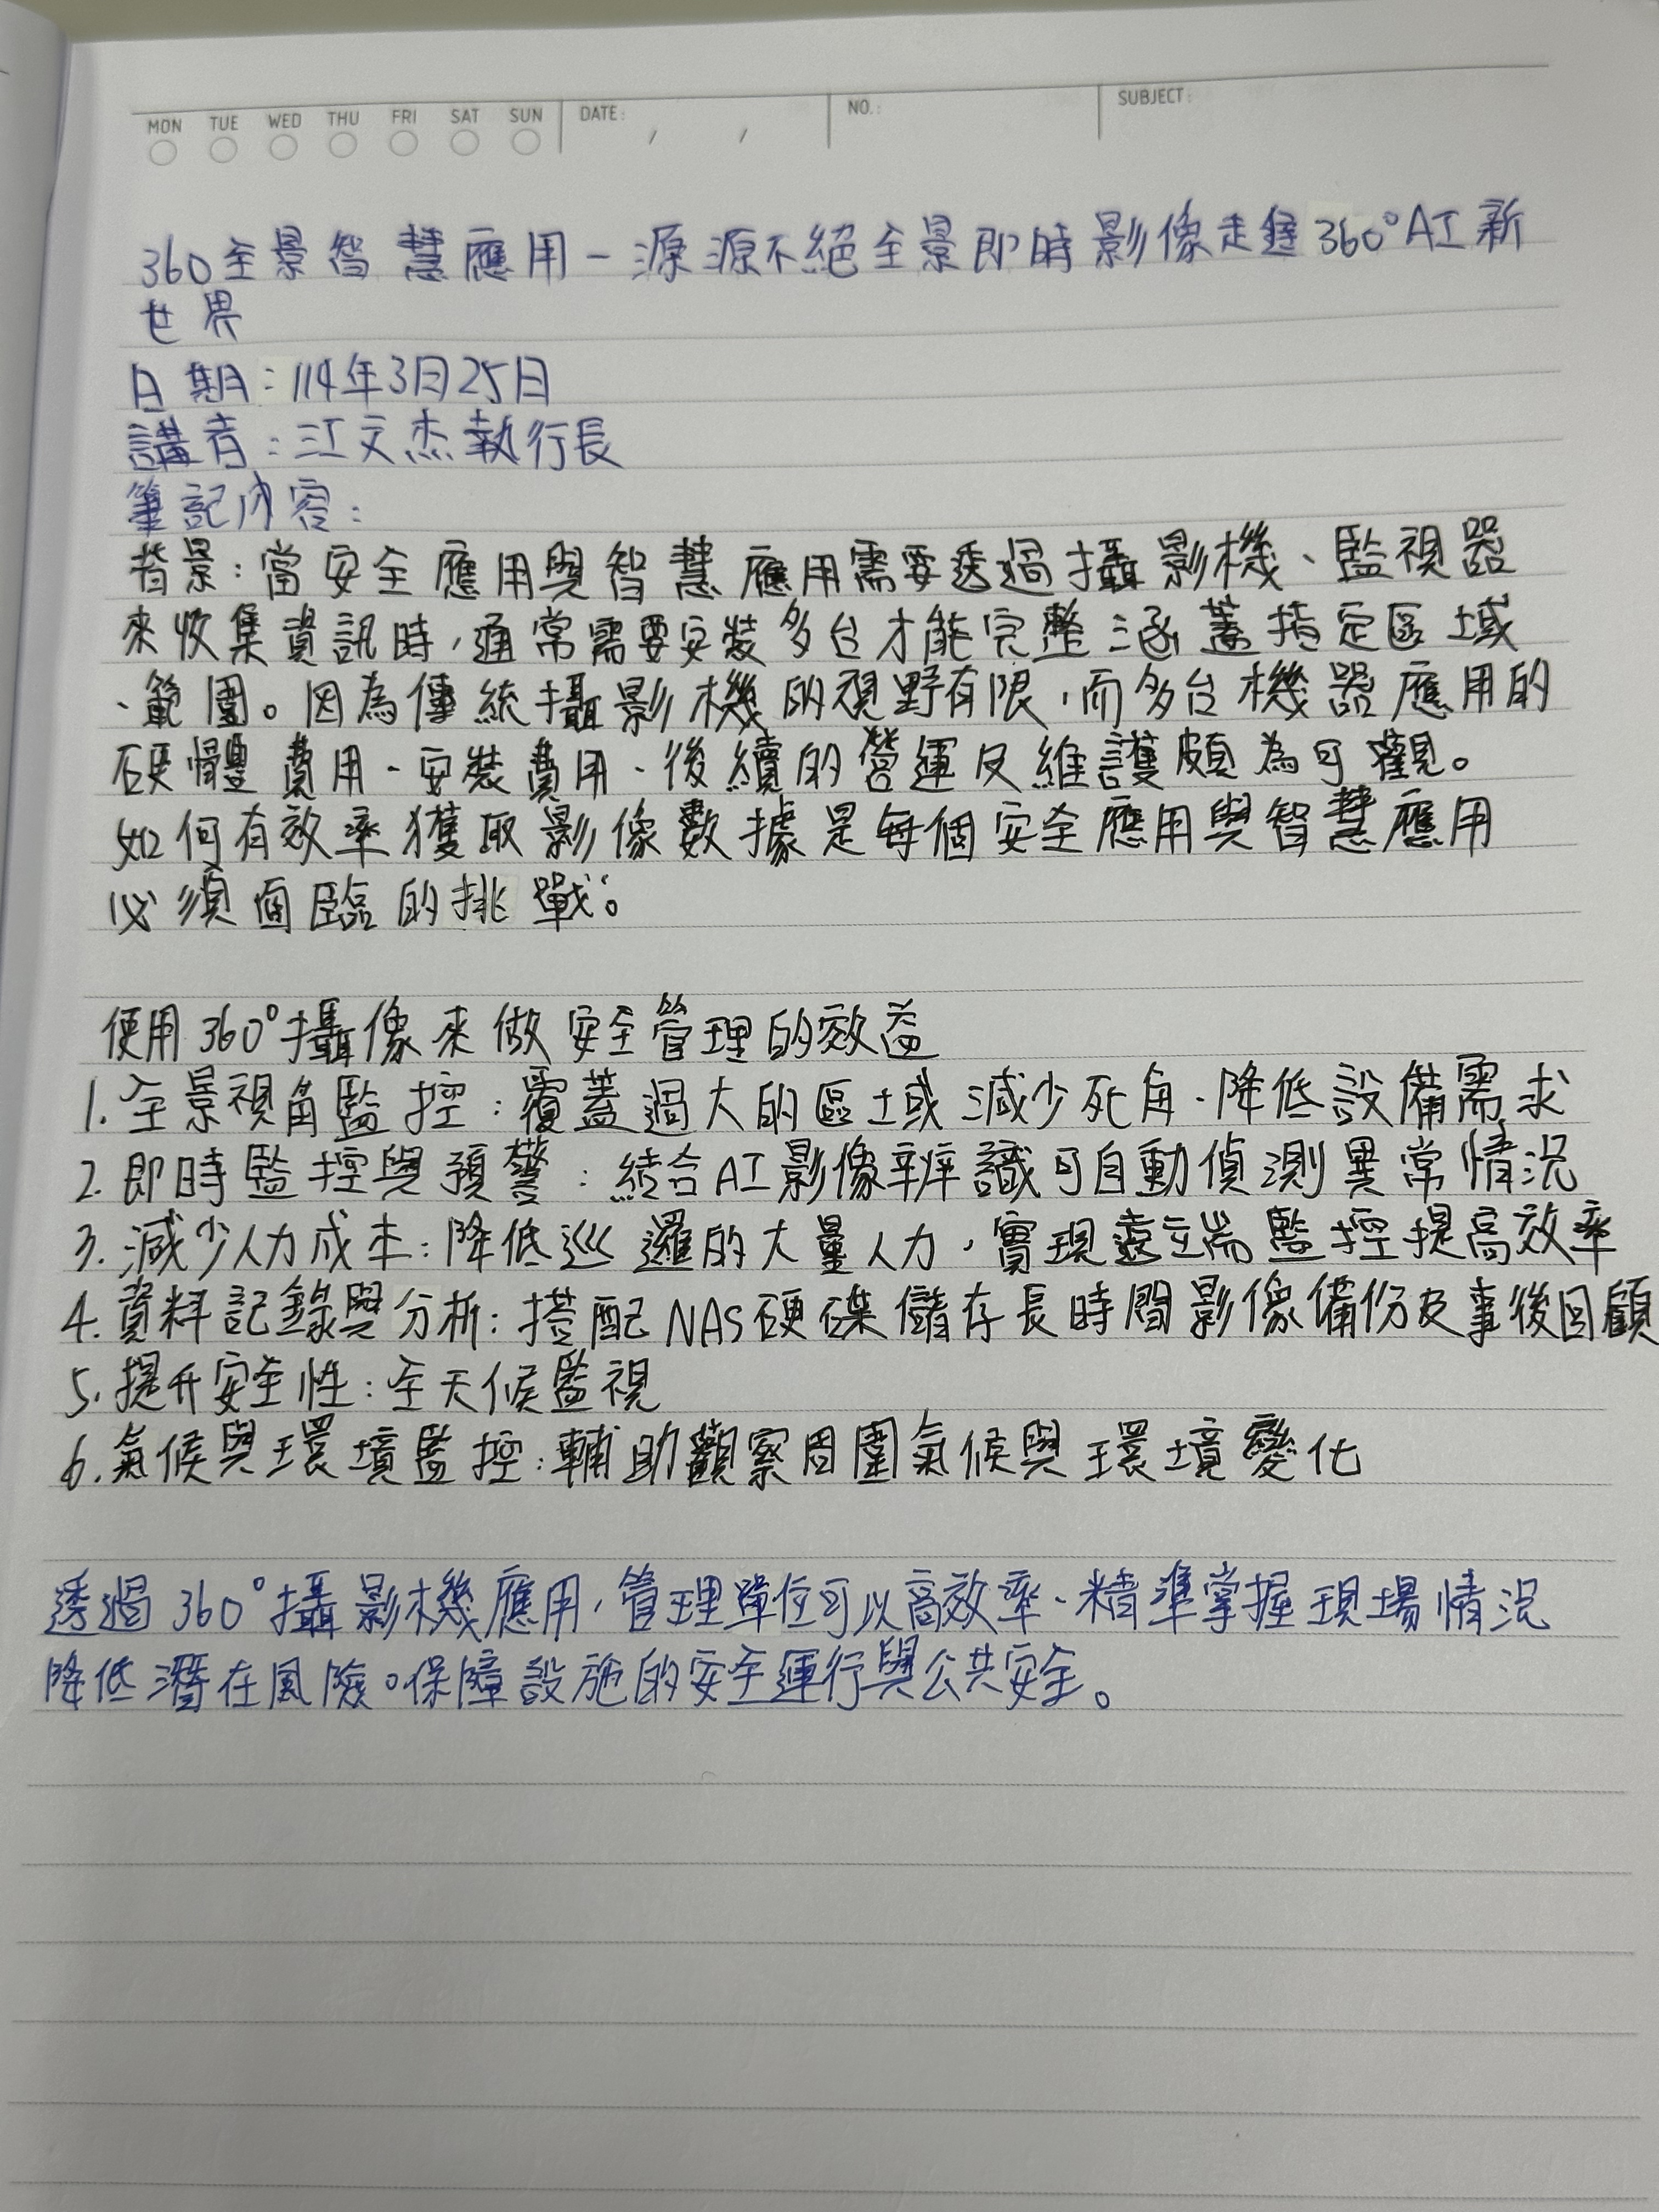 MON TUE WED THU FRI SAT SUN DATE: / / NO.: SUBJECT:
360全景智慧應用-源源不絕全景即時影像走進360°AI新
世界
日期:114年3月25日
講者:江文杰執行長
筆記內容:
背景:當安全應用與智慧應用需要透過攝影機、監視器
來收集資訊時,通常需要安裝多台才能完整涵蓋指定區域
、範圍。因為傳統攝影機的視野有限,而多台機器應用的
硬體費用、安裝費用、後續的營運及維護頗為可觀。
如何有效率獲取影像數據是每個安全應用與智慧應用
必須面臨的挑戰。
使用360°攝像來做安全管理的效益
1.全景視角監控:覆蓋過大的區域減少死角、降低設備需求
2.即時監控與預警:結合AI影像辨識可自動偵測異常情況
3.減少人力成本:降低巡邏的大量人力,實現遠端監控提高效率
4.資料記錄與分析:搭配NAS硬碟儲存長時間影像備份及事後回顧
5.提升安全性:全天候監視
6.氣候與環境監控:輔助觀察周圍氣候與環境變化
透過360°攝影機應用,管理單位可以高效率、精準掌握現場情況
降低潛在風險。保障設施的安全運行與公共安全。